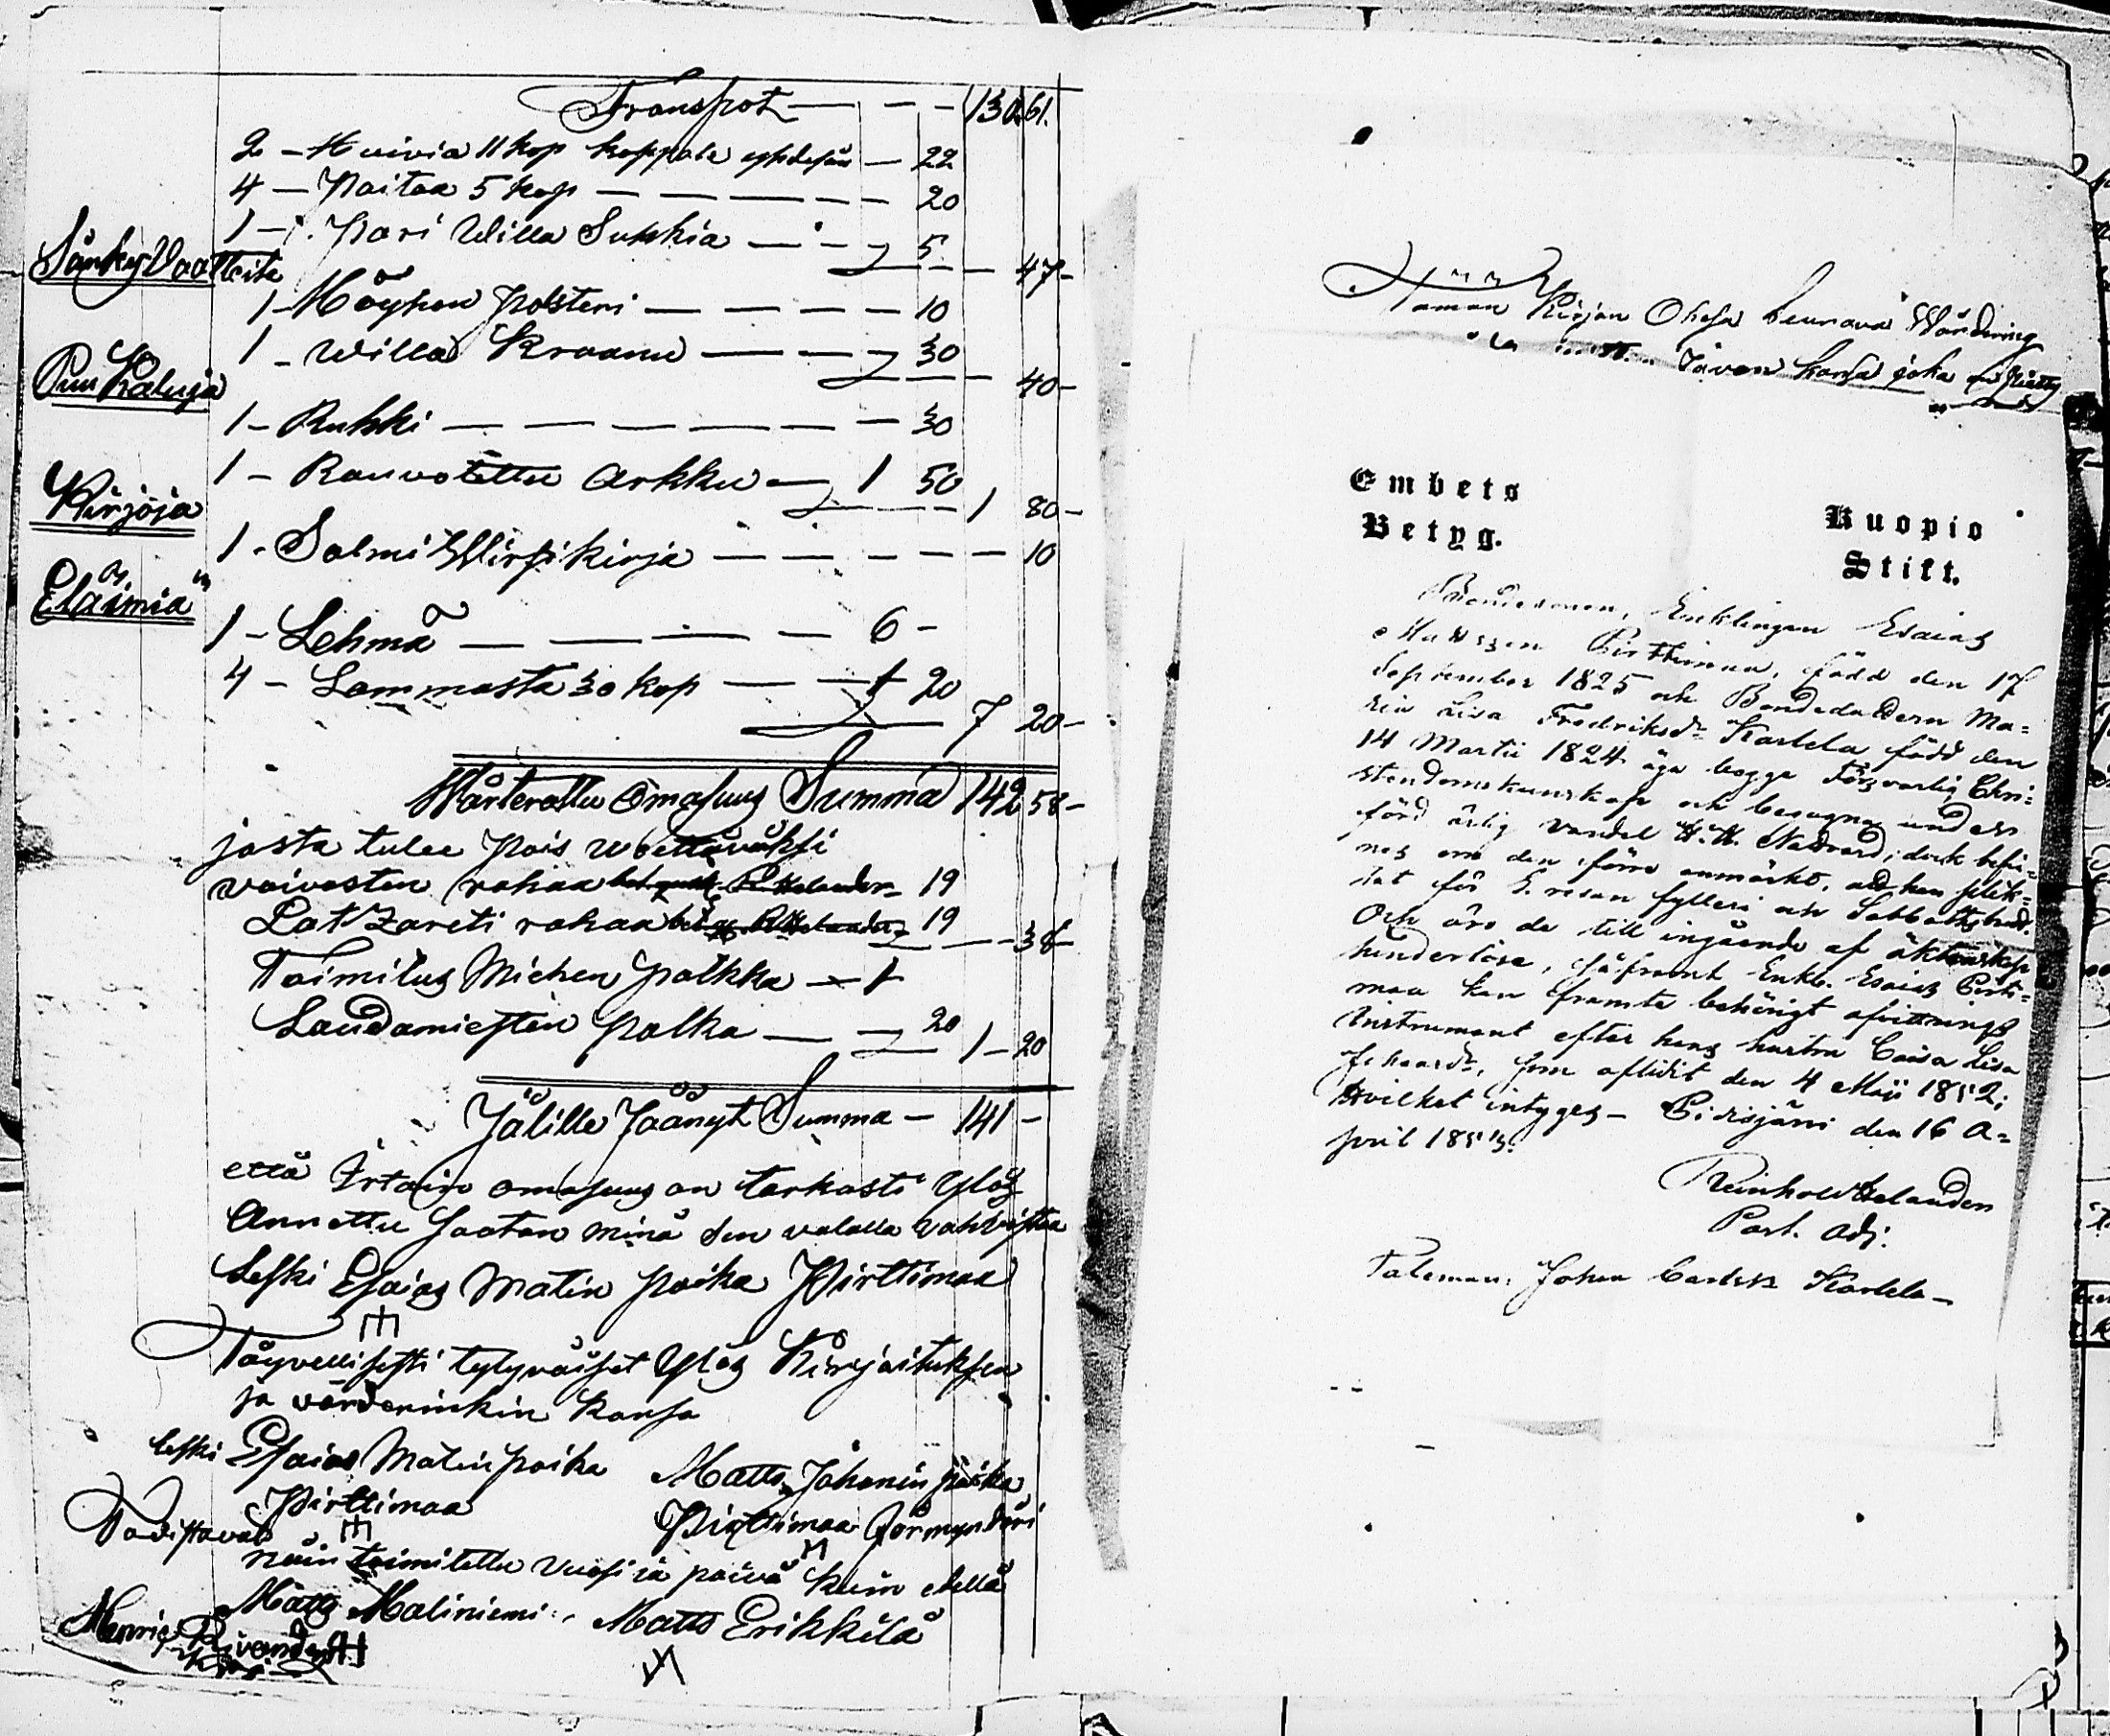 Transpot — — — 130. 61.
2 – Huivia 11 kop kappale yhdesän — 22
4 — Paitaa 5 kop — — — — — — 20
1 – Pari Willa Sukkia — — — 5
— — — 47 –
Sänky Vaatteita
1 – Höyhen polsteri — — — — — 10
1 – Willa Kraanu — — — 30
— — — 40 –
Puu Kaluja
1 – Rukki — — — — — — — 30
1 – Rauvotettu Arkku — 1 50
— — — 1 80 –
Kirjoja
1 – Salmi Wirsikirja — — — — — — 10
Eläimiä
1 – Lehmä — — — — — 6 –
4 – Lammasta 30 kop — — 1 20
7 20 –
Wärterattu Omasuus Summa 142 58 –
josta tulee pois wettäväksi
vaivasten rahaa 19
Lat Zareti rahaa 19
— — — 38
Toimitus Miehen palkka — 1
Laudamiesten palka — — 20
1 – 20
Jälille Jäänyt Summa — 141 –
että Irtain omasuus on tarkasti Ylös
Annettu Saatan minä sen valalla vahvistaa
Leski Esaias Matin poika Pirttimaa
Täyvellisesti tytyväiset Ylös Kirjoituksen
ja värderinkin kansa
leski Esaias Matin poika Matts Johanin poika
Pirttimaa Pirttimaa förmynderi
Todistavat
näin toimitettu vuosi ja päivä kuin edellä
Matts Maliniemi Matts Erikkilä
Henric
Taman Kirjan Ohesa seurava Wärdering
Tavon kansa joka on
Embets
Betyg.
Kuopio
Stift.
Bondesonen, Enklingen Esaias
Mattsson Pirttimaa, född den 17
September 1825 och Bondedottern Ma=
ria Lisa Fredriksdr Karlela född den
14 Martii 1824 äga begge försvarlig Chri=
stendomskunskap och begagna under
förd ärlig vandel H. H. Nattvard; dock befin=
nes om den förre anmärkt, att han plik=
tat för 1. resan fylleri och Sabbatsbrott.
Och äro de till ingående af äktenskap
hinderlöse, såframt Enkl. Esaias Pirti=
maa kan framte behörigt afvittrings
Instrument efter hans hustru Caisa Lisa
som aflidit den 4 Maji 1852;
Hvilket intygas – Pidisjärvi den 16 A=
pril 1853.
Reinhold Helander
Past. Adj.
Taleman, Johan Karlela –